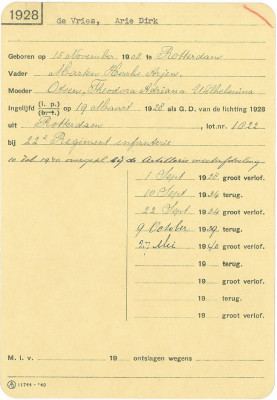 1928
de Vries, Arie Dirk
Geboren op 15 November 1908 te Rotterdam
Vader
Moeder Otsen, Theodora Adriana Wilhelmina
Ingelijfd (i. p.) (br.t.) op 19 Maart 1928 als G.D. van de lichting 1928
uit Rotterdam , lot.nr. 1022
bij 22e Regiment infanterie
bij de Artillerie
1 Sept 1928 groot verlof.
10 Sept 1934 terug.
22 Sept 1934 groot verlof.
9 October 1939 terug.
27 Mei 1940 groot verlof.
19 terug.
19 groot verlof.
19 terug.
19 groot verlof.
M. i. v. 19 ontslagen wegens
11744 - '40